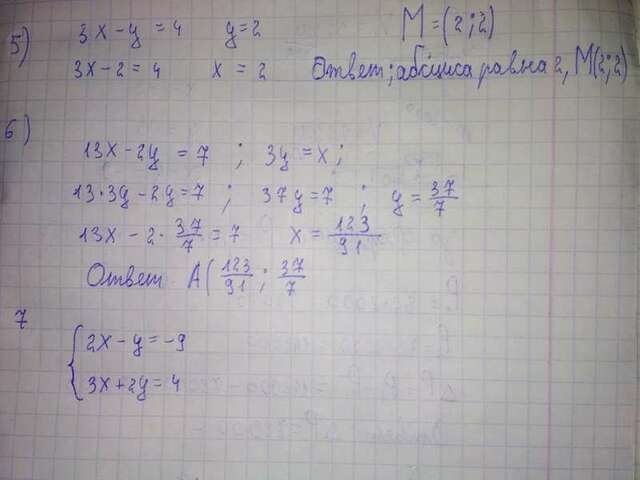 5) 3x - y = 4 y = 2 M = (2; 2)
3x - 2 = 4 x = 2 Ответ; абсциса равна 2, M(2; 2)
6)
13x - 2y = 7 ; 3y = x;
13 * 3y - 2y = 7 ; 37y = 7 ; y = 37/7
13x - 2 · 37/7 = 7 x = 123/91
Ответ A(123/91 ; 37/7
7
{ 2x - y = -9
3x + 2y = 4